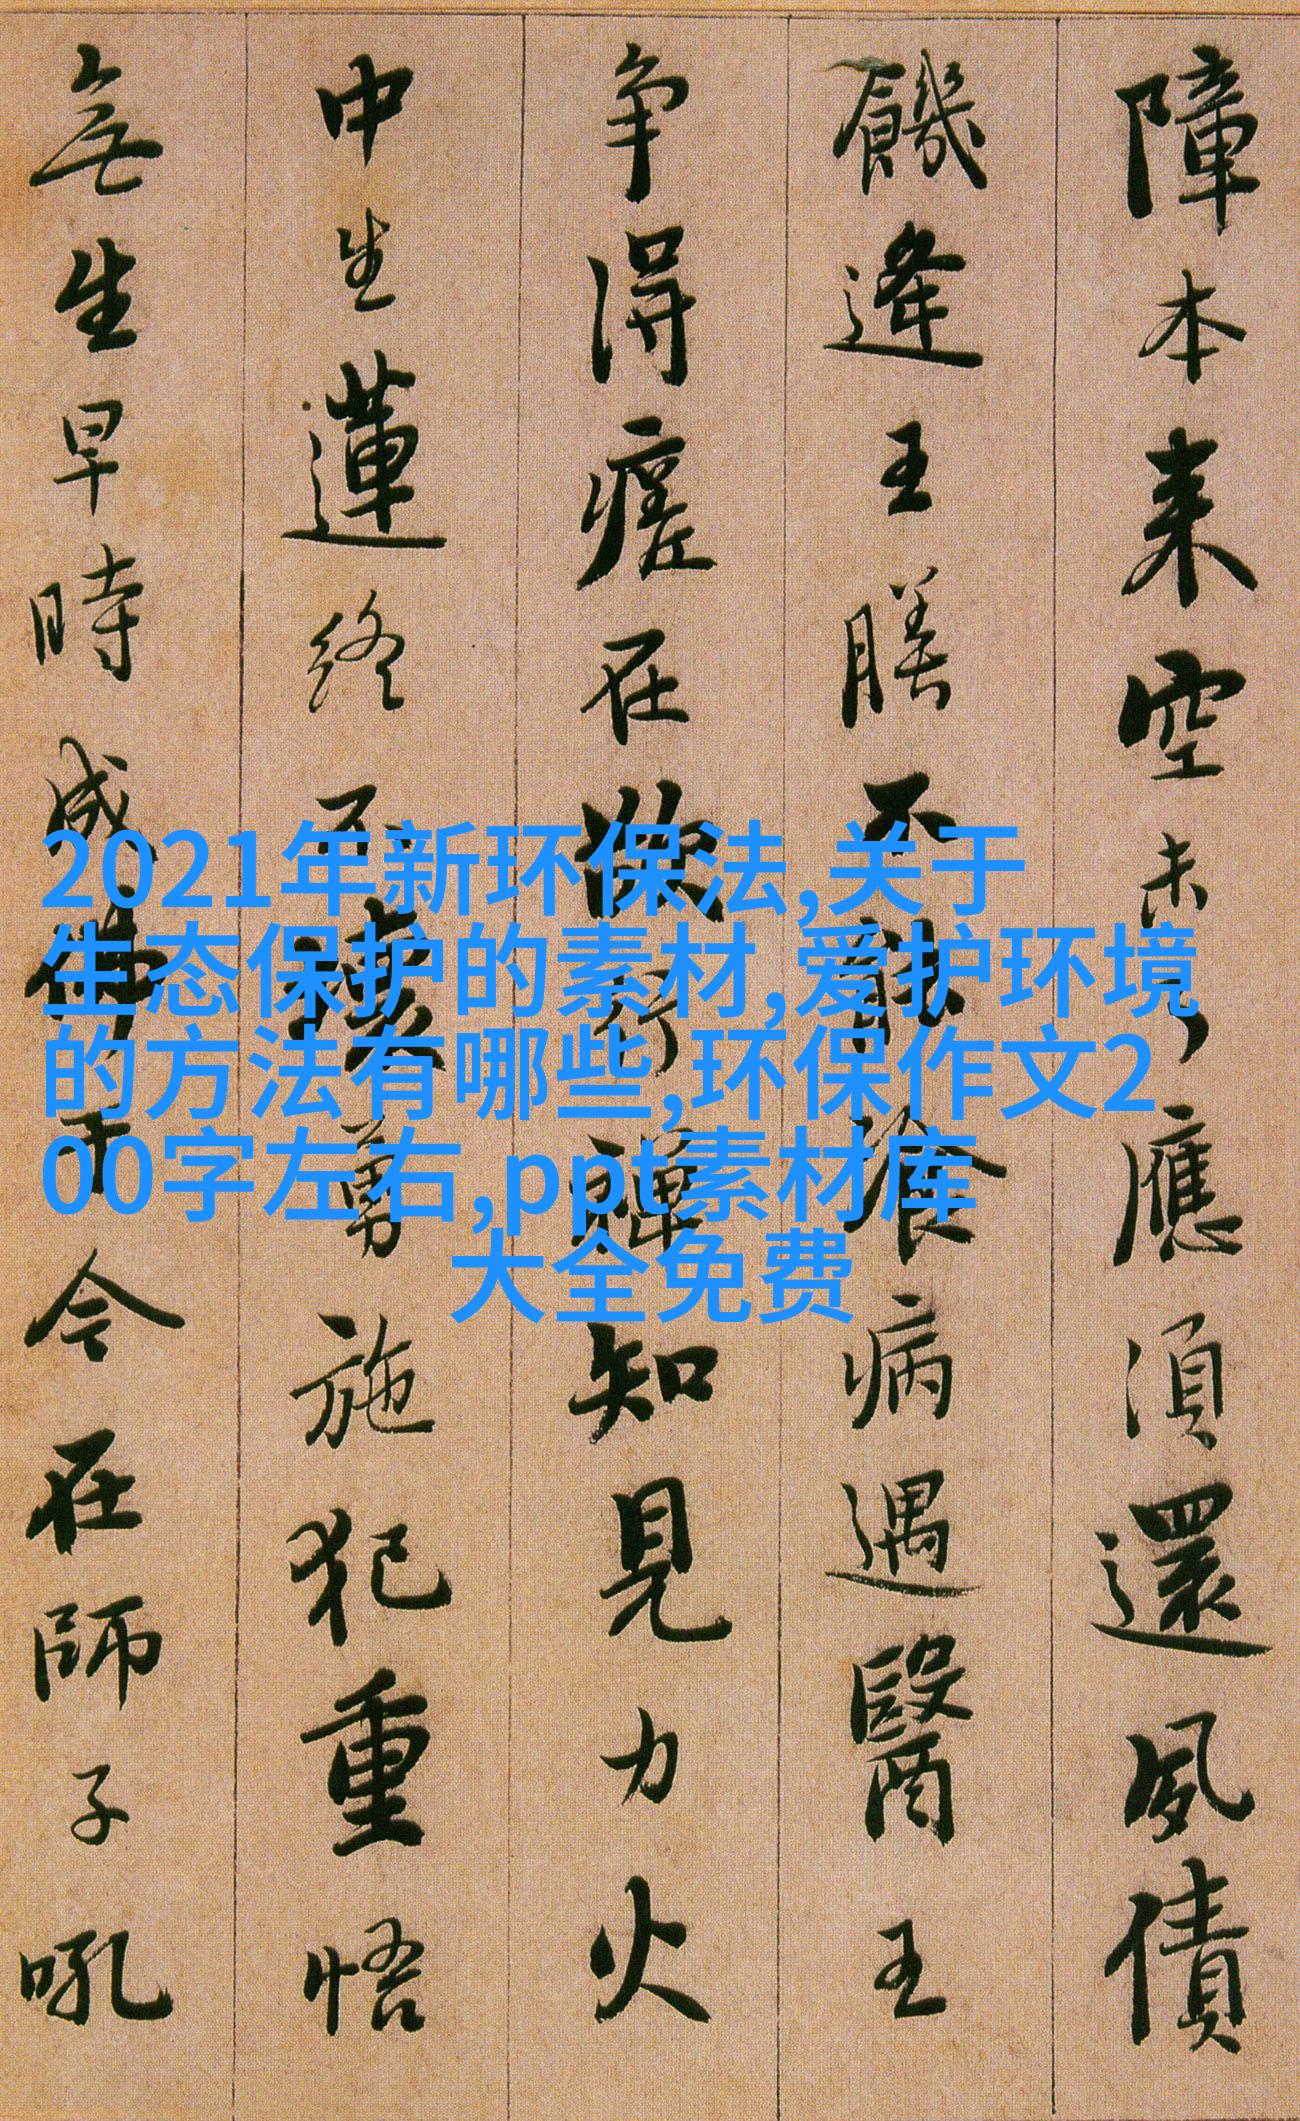 障本来空未了應須還夙債
饑逢王膳不能飡病遇醫王
争得瘥在欲行禪知見力火
中生蓮終不壞勇施犯重悟
無生早時成佛于今在師子吼
2021年新环保法,关于
生态保护的素材,爱护环境
的方法有哪些,环保作文2
00字左右,ppt素材库
大全免费